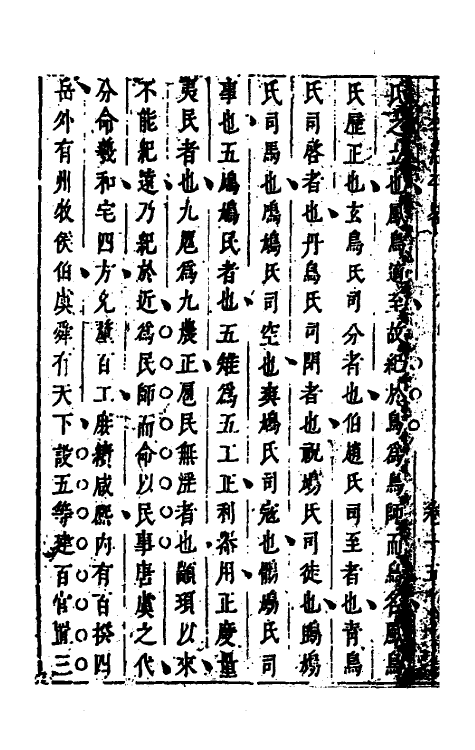 氏之立也鳳鳥適至故紀於鳥爲鳥師而鳥名鳳鳥
氏歷正也玄鳥氏司分者也伯趙氏司至者也青鳥
氏司啓者也丹鳥氏司閉者也祝鳩氏司徒也鴡鳩
氏司馬也鳲鳩氏司空也爽鳩氏司寇也鶻鳩氏司
事也五鳩鳩民者也五雉爲五工正利器用正度量
夷民者也九扈爲九農正扈民無淫者也顓頊以來
不能紀遠乃紀於近爲民師而命以民事唐虞之代
分命羲和宅四方允釐百工庶績咸熙内有百揆四
岳外有州牧侯伯虞舜有天下設五等建百官置三